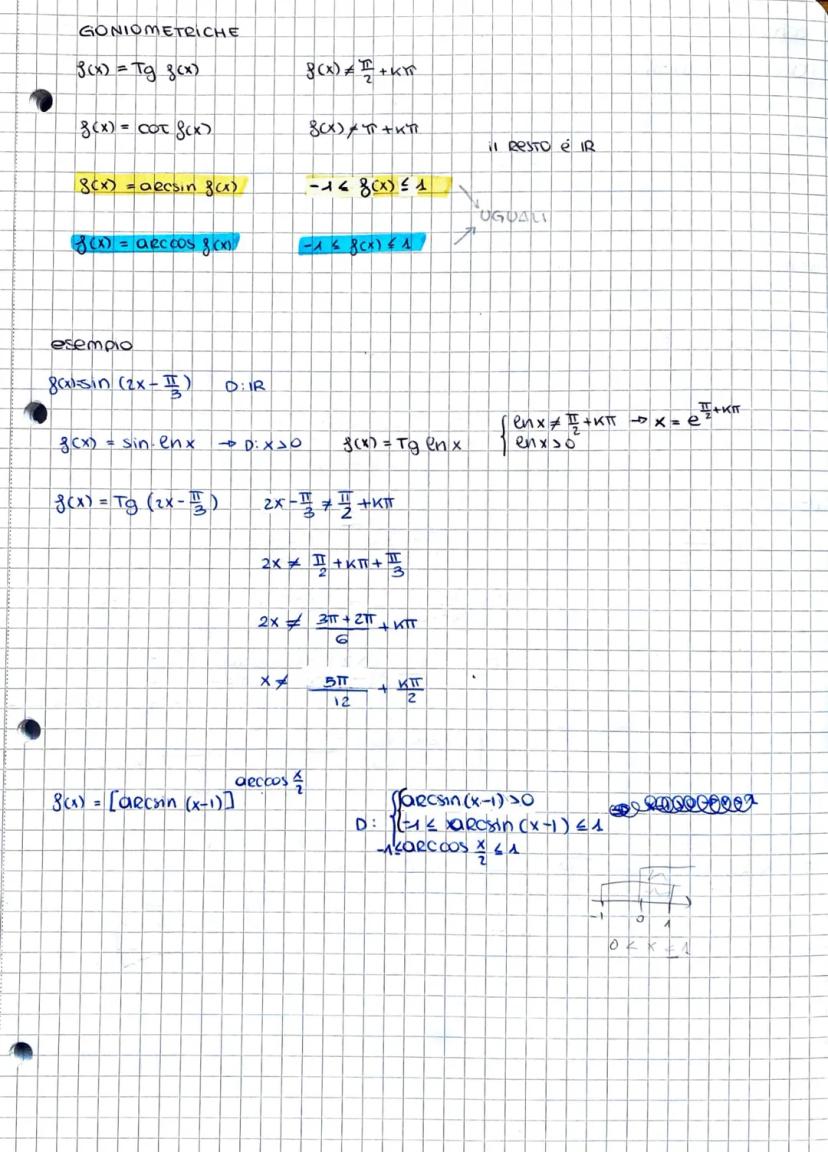 GONIOMETRICHE
f(x) = Tg f(x) f(x) ≠ π/2 + Kπ
f(x) = cot f(x) f(x) ≠ π + Kπ
il RESTO é IR
f(x) = arcsin f(x) -1 ≤ f(x) ≤ 1
UGUALI
f(x) = arccos f(x) -1 ≤ f(x) ≤ 1
esempio
f(x)=sin (2x - π/3) D: IR
f(x) = sin·lnx → D: x>0 f(x) = Tg lnx { lnx ≠ π/2 + Kπ → x = e^(π/2 + Kπ)
lnx>0
f(x) = Tg (2x - π/3) 2x - π/3 ≠ π/2 + Kπ
2x ≠ π/2 + Kπ + π/3
2x ≠ (3π + 2π)/6 + Kπ
x ≠ 5π/12 + Kπ/2
f(x) = [arcsin (x-1)]^(arccos x/2)
D: { arcsin(x-1) >0
-1 ≤ arcsin (x-1) ≤ 1
-1 ≤ arccos x/2 ≤ 1
-1 0 1
0 < x ≤ 1